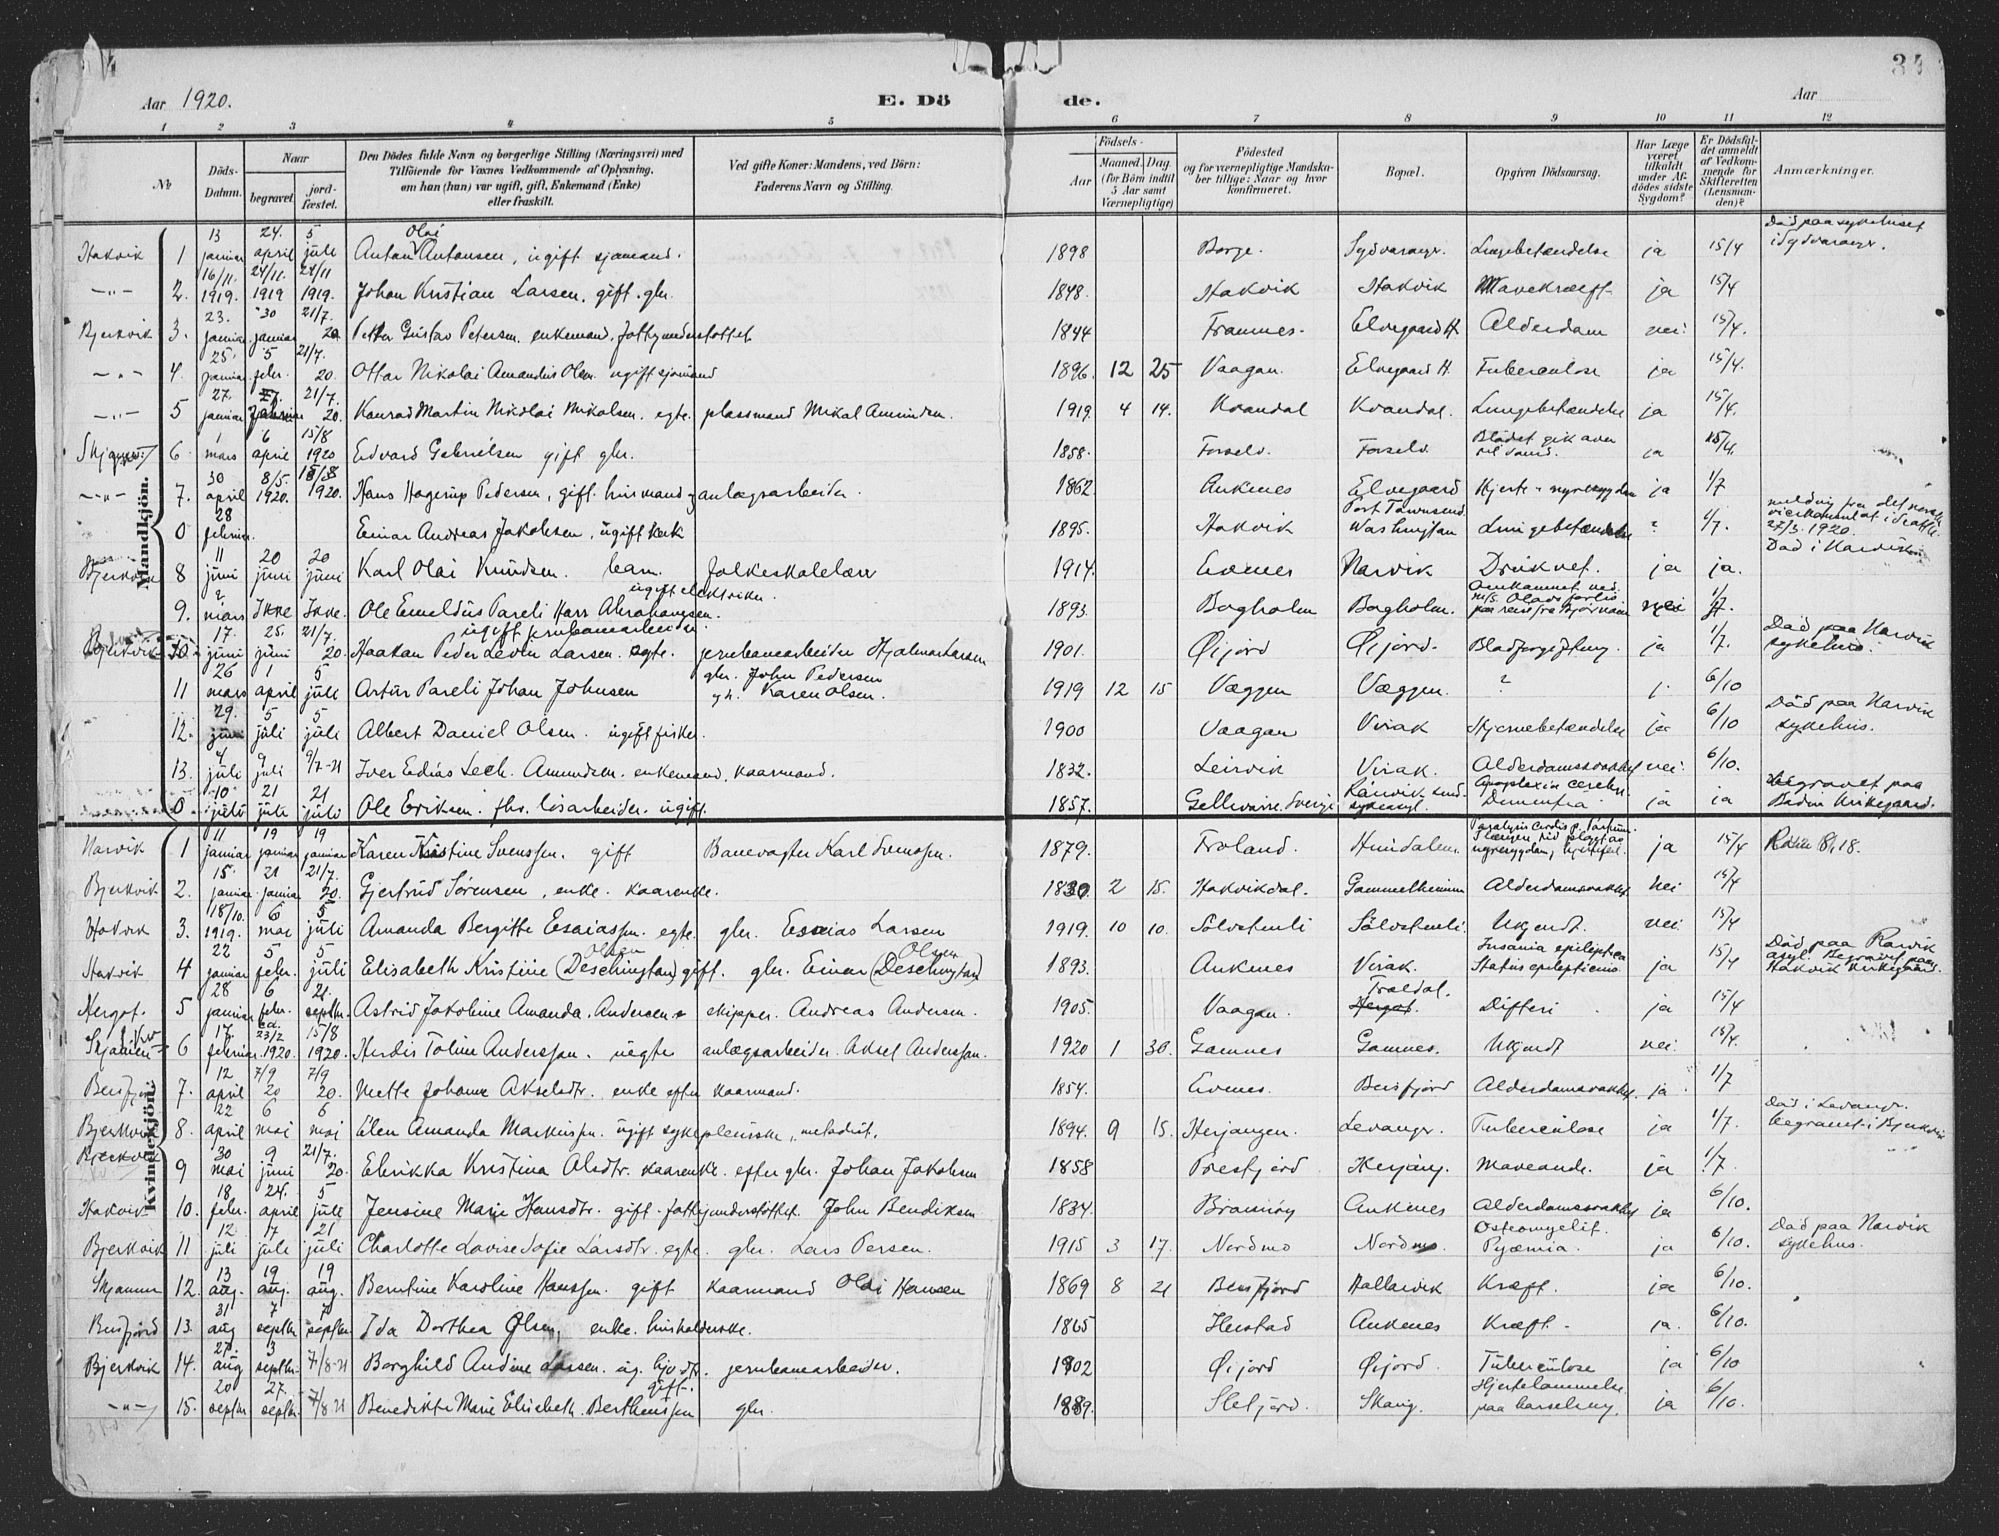 34
Aar 1920.
E. Dö de.
Aar
1 2 3 4 5 6 7 8 9 10 11 12
№
Döds-Datum.
Naar
begravet.
jord-fæstet.
Den Dödes fulde Navn og borgerlige Stilling (Næringsvei) med Tilföiende for Voxnes Vedkommende af Oplysning, om han (hun) var ugift, gift, Enkemand (Enke) eller fraskilt.
Ved gifte Koner: Mandens, ved Börn: Faderens Navn og Stilling.
Födsels-
Aar
Maaned. Dag.
(for Börn indtil 5 Aar samt Værnepligtige)
Födested og for værnepligtige Mandskaber tillige: Naar og hvor konfirmeret.
Bopæl.
Opgiven Dödsaarsag.
Har Læge været tilkaldt under Afdödes sidste Sygdom?
Er Dödsfaldet anmeldt af Vedkommende for Skifteretten (Lensmanden)?
Anmærkninger.
Mandkjön.
Haakvik 1 13 januar 24. april 5 juli Anton Olai Antonsen, ugift sjømand. 1898 Borge. Sydvaranger. Lungebetændelse ja 15/4 Död paa sykehuset i Sydvaranger.
-"- 2. 16/11. 1919. 24/11. 1919 24/11 1919. Johan Kristian Larsen, gift. gbr. 1848. Haakvik Haakvik Mavekræft ja 15/4
Bjerkvik 3. 23. januar 30 januar 21/7. 20 Petter Gustav Petersen. enkemand. fattigunderstøttet. 1844 Framnes. Elvegaard H. Alderdom nei 15/4.
-"- 4. 25. januar 5 febr. 21/7. 20. Ottar Nikolai Amandus Olsen. ugift sjømand 1896. 12 25 Vaagan. Elvegaard H. Tuberculose ja 15/4.
-"- 5 27. januar 21/7. 20. Konrad Martin Nikolai Mikalsen. egte. plassmand Mikal Amundsen. 1919. 4 14. Kvandal Kvandal. Lungebetændelse ja 15/4.
6. 1 mars 6 april 15/8 1920 Edvard Gabrielsen gift gbr. 1858. Forselv. Forselv. Blodet gik over til vand. ja 15/4.
-"- 7. 30 april 8/5. 1920. 15/8 1920. Hans Hagerup Pedersen, gift. husmand og anlægsarbeider. 1862. Ankenes Elvegaard Hjerte- nyresygdom ja 1/7
0 28 februar. Einar Andreas Jakobsen, ugift 1895. Haakvik Port Townsend. Washington Lungebetændelse ? 1/7. melding fra det norske vicekonsulat i Seattle 27/3. 1920.
Bjerkvik 8 11 juni 20 juni 20 juni Karl Olai Knudsen. barn. folkeskolelærer 1914. Evenes Narvik Druknet. ja ja. Död i Narvik
9. 2 mars Ikke Ikke. Ole Emeldus Pareli Harr Abrahamsen. ugift elektriker. 1893. Bogholm Bogholm. Omkommet ved m/s. Olavs forlis. paa reise fra Bjørnøen nei 1/7.
Bjerkvik 10. 17. juni 25. juni 21/7. 20. Haakon Peder Levin Larsen. egte. ugift jernbanearbeider jernbanearbeider Hjalmar Larsen 1901. Øijord Øijord. Blodforgiftning. ja 1/7. Död paa Narvik sykehus.
11 26 mars 1 april 5 juli Artur Pareli Johan Johnsen gbr. John Pedersen Karen Olsen. 1919 12 15 Væggen Væggen. ? 6/10
12. 29. juni 5 juli 5 juli Albert Daniel Olsen. ugift fisker. 1900 Vaagan Virak Hjernebetændelse ja 6/10 Död paa Narvik sykehus.
13. 4 juli 9 juli 9/7-21 Iver Edias Lech. Amundsen. enkemand, kaarmand. 1832. Leirvik Virak. Alderdomssvakhet nei 6/10.
0 10 juli 21 juli 21 juli Ole Eriksen. fhv. løsarbeider. ugift. 1857. Gellivaire. Sverige Apoplexia cerebri Dementia ja ja Begravet paa Bodin kirkegaard.
Kvindekjön.
Narvik 1 11 januar 19 januar 19 januar Karen Kristine Svenssen. gift Banevogter Karl Svenssen. 1879. Froland. Hundalen. nyresygdom, hjertefeil. ja 15/4
Bjerkvik 2. 15. januar. 21 januar 21/7. 20. Gjertrud Sørensen, enke. kaarenke. 1830 2 15. Haakvikdal. Gammelheimen Alderdomssvakhet nei 15/4
Haakvik 3. 18/10. 1919. 6 mai 5 juli Amanda Bergitte Esaiassen. egte. gbr. Esaias Larsen 1919. 10 10. Sölvstuli Sölvstuli. Ukjendt. nei 15/4
Haakvik 4 22 januar 5 febr. 5 juli Elisabeth Kristine (Deschington) Olsen gift. gbr. Einar (Deschington) Olsen 1893. Ankenes Virak. Insania epileptica Status epilepticus. ja 15/4 Död paa Rønvik asyl. Begravet paa Haakvik kirkegaard.
Hergot. 5 28 januar 6 febr. 21. septbr. Astrid Jakobine Amanda. Andersen skipper. Andreas Andersen. 1905. Vaagan. Hergot. Traldal. Difteri ja 15/4
Skjomen 6 17. februar. ca. 23/2 1920. 15/8 1920. Herdis Toline Anderssen. uegte anlægsarbeider. Aksel Anderssen. 1920 1 30. Gamnes Gamnes. Ukjendt nei 15/4.
Beisfjord 7. 12 april 7/9 20 7/9 20. Mette Johanne Akselsdtr. enke efter kaarmand. 1854. Evenes. Beisfjord Alderdomssvakhet. ja 1/7
Bjerkvik 8. 22 april 6 mai 6 mai Elen Amanda Markussen. ugift sykepleierske, metodist. 1894. 9 15. Herjangen. Levanger. Tuberculose ja 1/7. Död i Levanger. begravet i Bjerkvik
Bjerkvik 9 30 mai 9 juni 21/7. 20. Elerikka Kristina Olsdtr. kaarenke. efter gbr. Johan Jakobsen 1858 Presfjord Herjang. Maveonde. ja 1/7.
Haakvik 10. 18 febr. 24. april 5 juli Jensine Marie Hansdtr. gift. fattigunderstøttet. John Bendiksen 1834. Brønnøy Ankenes Alderdomssvakhet ja 6/10.
Bjerkvik 11 12 juli 17 juli 21 juli Charlotte Lovise Sofie Larsdtr. egte. gbr. Lars Persen. 1915 3 17. Nordmo Nordmo. Osteomyelit. Pyæmia. ja 6/10. Död paa Narvik sykehus.
Skjomen 12. 13 aug. 19 aug. 19 aug. Berntine Karoline Hanssen. gift kaarmand Olai Hansen 1869 8 21 Beisfjord Kræft. ja 6/10.
Beisfjord 13. 31 aug 7 septbr 7 septbr. Ida Dorthea Olsen, enke. husholderske. 1865 Herstad Ankenes Kræft. ja. 6/10.
Bjerkvik 14. 27. aug 3 septbr. 7/8-21 Borghild Andine Larsen. ug. jernbanearbeider. 1902 Øijord Øijord. Tuberculose ja 6/10
-"- 15. 20 septbr 27. septbr. 7/8 21 Benedikte Marie Elisebeth. Bertheussen gift. gbr. 1889. Sletjord. Skaug. Hjertelammelse. paa barselseng. ja 6/10.